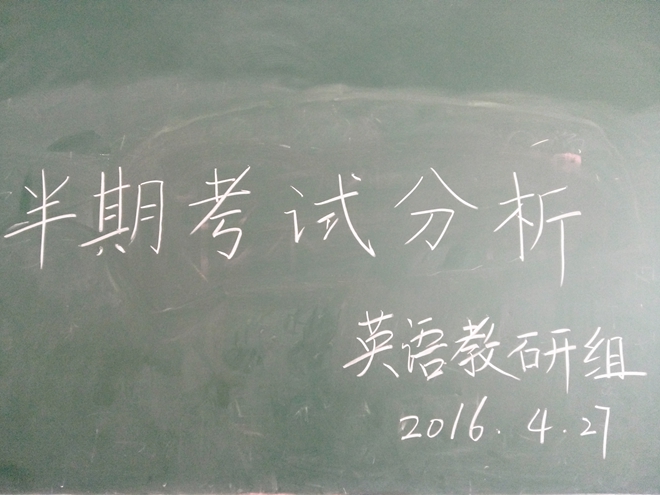 半期考试分析
英语教研组
2016.4.27